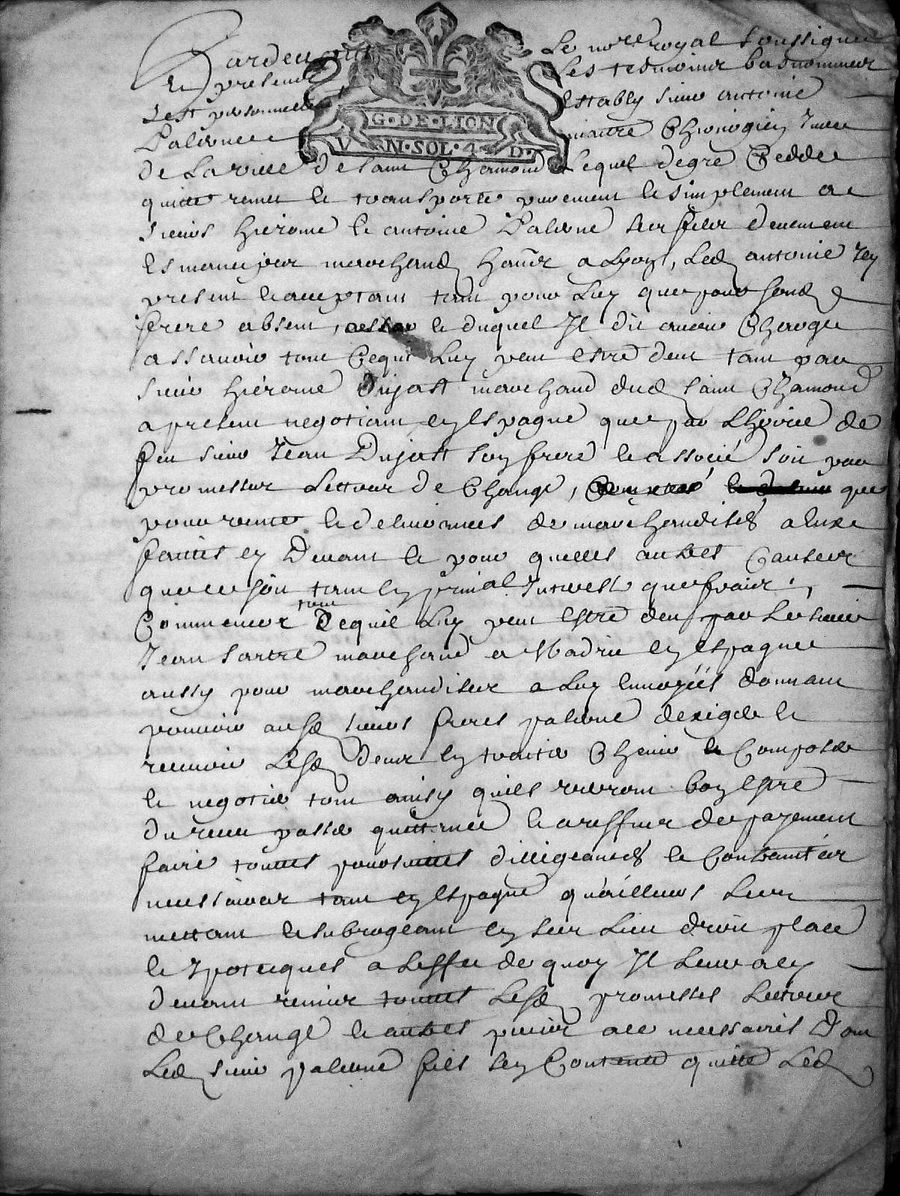 Pardevant Le no.re royal soussigné
Et presents les tesmoins bas nommez
s'est personnellement estably sieur antoine
Palerne maitre Chirurgien Juré
de la ville de saint Chamond Lequel de gré Cedde
quitte remet et transporte purement et simplement a
sieurs hiérome et antoine Palerne ses fils deuement
esmancipez marchands a Lyon, Led antoine Icy
present et acceptant tant pour Luy que pour sond
frere absent, et duquel Il dit avoir Charge
assavoir tout Ce qui Luy peut estre deu tant par
sieur hiérome Dujast marchand dud saint Chamond
a present negotiant en espagne que par L'hoirie de
feu sieur Jean Dujast son frere et associé soit par
promesses Lettres de Change, que
pour vente et delivrances de marchandises a luy
faites en Devant et pour quelles autres Causes
que ce soit tant en prin.al Interest que fraix,
Comme aussy tout Ce qui Luy peut estre deu par Le sieur
Jean sartre marchand a Madrid en espagne
aussy pour marchandises a Luy envoyées donnant
pouvoir ausd sieurs freres palerne d'exiger et
recevoir Lesd deux en traiter Chevir et Composer
et negotier tout ainsy quils verront bon estre
du receu passer quittance et a reffus de payement
faire touttes poursuittes dilligeances et Contraintes
necessaires tant en espagne qu'ailleurs Les
mettant et subrogeant en son Lieu droit place
et Ypoteques a L'effet de quoy Il Leur a cy
devant remis touttes Lesd promesses Lettres
de Change et autres pieces a ce necessaires Dont
Led sieur palerne fils se Contente quitte Led
G·DE·LION
V N·SOL·4·D·